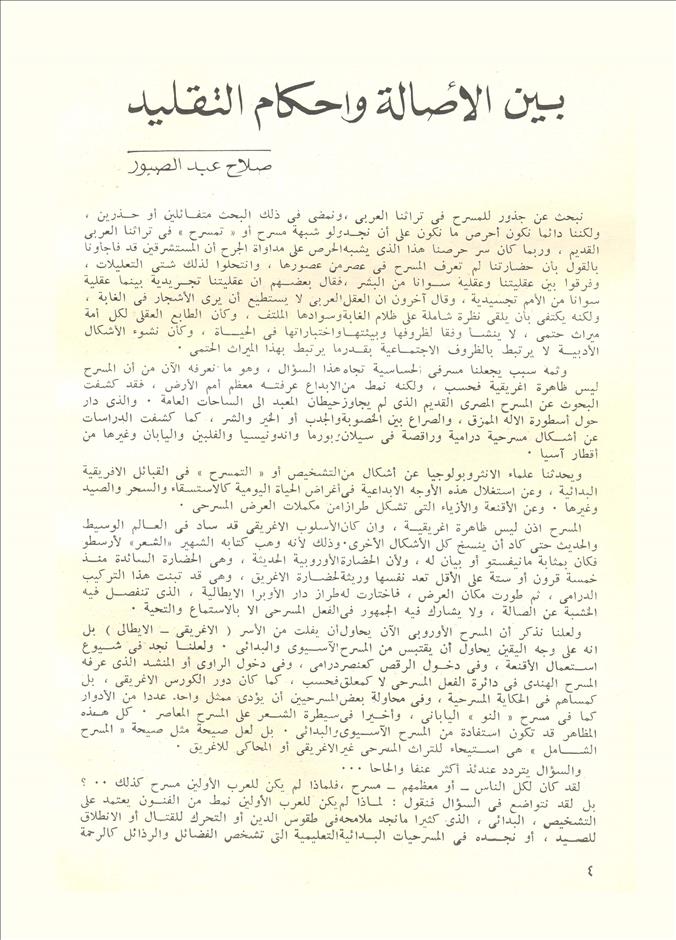 بين الأصالة واحكام التقليد
صلاح عبد الصبور
نبحث عن جذور للمسرح فى تراثنا العربى ، ونمضى فى ذلك البحث متفائلين أو حذرين ،
ولكننا دائما نكون أحرص ما نكون على أن نجد ولو شبهة مسرح أو « تمسرح » فى تراثنا العربى
القديم ، وربما كان سر حرصنا هذا الذى يشبه الحرص على مداواة الجرح أن المستشرقين قد فاجأونا
بالقول بأن حضارتنا لم تعرف المسرح فى عصر من عصورها ، وانتحلوا لذلك شتى التعليلات ،
وفرقوا بين عقليتنا وعقلية سوانا من البشر ، فقال بعضهم ان عقليتنا تجريدية بينما عقلية
سوانا من الأمم تجسيدية ، وقال آخرون ان العقل العربى لا يستطيع أن يرى الأشجار فى الغابة ،
ولكنه يكتفى بأن يلقى نظرة شاملة على ظلام الغابة وسوادها الملتف ، وكأن الطابع العقلى لكل أمة
ميراث حتمى ، لا ينشأ وفقا لظروفها وبيئتها واختباراتها فى الحياة ، وكأن نشوء الأشكال
الأدبية لا يرتبط بالظروف الاجتماعية بقدر ما يرتبط بهذا الميراث الحتمى .
وثمة سبب يجعلنا مسرفى الحساسية تجاه هذا السؤال ، وهو ما نعرفه الآن من أن المسرح
ليس ظاهرة اغريقية فحسب ، ولكنه نمط من الابداع عرفته معظم أمم الأرض ، فقد كشفت
البحوث عن المسرح المصرى القديم الذى لم يجاوز حيطان المعبد الى الساحات العامة . والذى دار
حول أسطورة الاله الممزق ، والصراع بين الخصوبة والجدب أو الخير والشر ، كما كشفت الدراسات
عن أشكال مسرحية درامية وراقصة فى سيلان وبورما واندونيسيا والفلبين واليابان وغيرها من
أقطار آسيا .
ويحدثنا علماء الانثروبولوجيا عن أشكال من التشخيص أو « التمسرح » فى القبائل الافريقية
البدائية ، وعن استغلال هذه الأوجه الابداعية فى أغراض الحياة اليومية كالاستسقاء والسحر والصيد
وغيرها . وعن الأقنعة والأزياء التى تشكل طرازا من مكملات العرض المسرحى .
المسرح اذن ليس ظاهرة اغريقية ، وان كان الأسلوب الاغريقى قد ساد فى العالم الوسيط
والحديث حتى كاد أن ينسخ كل الأشكال الأخرى . وذلك لأنه وهب كتابه الشهير «الشعر» لأرسطو
فكان بمثابة مانيفستو أو بيان له ، ولأن الحضارة الأوروبية الحديثة ، وهى الحضارة السائدة منذ
خمسة قرون أو ستة على الأقل تعد نفسها وريثة لحضارة الاغريق ، وهى قد تبنت هذا التركيب
الدرامى ، ثم طورت مكان العرض ، فاختارت له طراز دار الأوبرا الايطالية ، الذى تنفصل فيه
الخشبة عن الصالة ، ولا يشارك فيه الجمهور فى الفعل المسرحى الا بالاستماع والتحية .
ولعلنا نذكر أن المسرح الأوروبى الآن يحاول أن يفلت من الأسر ( الاغريقى ــ الايطالى ) بل
انه على وجه اليقين يحاول أن يقتبس من المسرح الآسيوى والبدائى . ولعلنا نجد فى شيوع
استعمال الأقنعة ، وفى دخول الرقص كعنصر درامى ، وفى دخول الراوى أو المنشد الذى عرفه
المسرح الهندى فى دائرة الفعل المسرحى لا كمعلق فحسب ، كما كان دور الكورس الاغريقى ، بل
كمساهم فى الحكاية المسرحية ، وفى محاولة بعض المسرحيين أن يؤدى ممثل واحد عددا من الأدوار
كما فى مسرح « النو » اليابانى ، وأخيرا فى سيطرة الشعر على المسرح المعاصر . كل هذه
المظاهر قد تكون استفادة من المسرح الآسيوى والبدائى . بل لعل صيحة مثل صيحة « المسرح
الشامل » هى استيحاء للتراث المسرحى غير الاغريقى أو المحاكى للاغريق .
والسؤال يتردد عندئذ أكثر عنفا والحاحا ...
لقد كان لكل الناس ــ أو معظمهم ــ مسرح ، فلماذا لم يكن للعرب الأولين مسرح كذلك .. ؟
بل لقد نتواضع فى السؤال فنقول : لماذا لم يكن للعرب الأولين نمط من الفنون يعتمد على
التشخيص ، البدائى ، الذى كثيرا ما نجد ملامحه فى طقوس الدين أو التحرك للقتال أو الانطلاق
للصيد ، أو نجسده فى المسرحيات البدائية التعليمية التى تشخص الفضائل والرذائل كالرحمة
٤